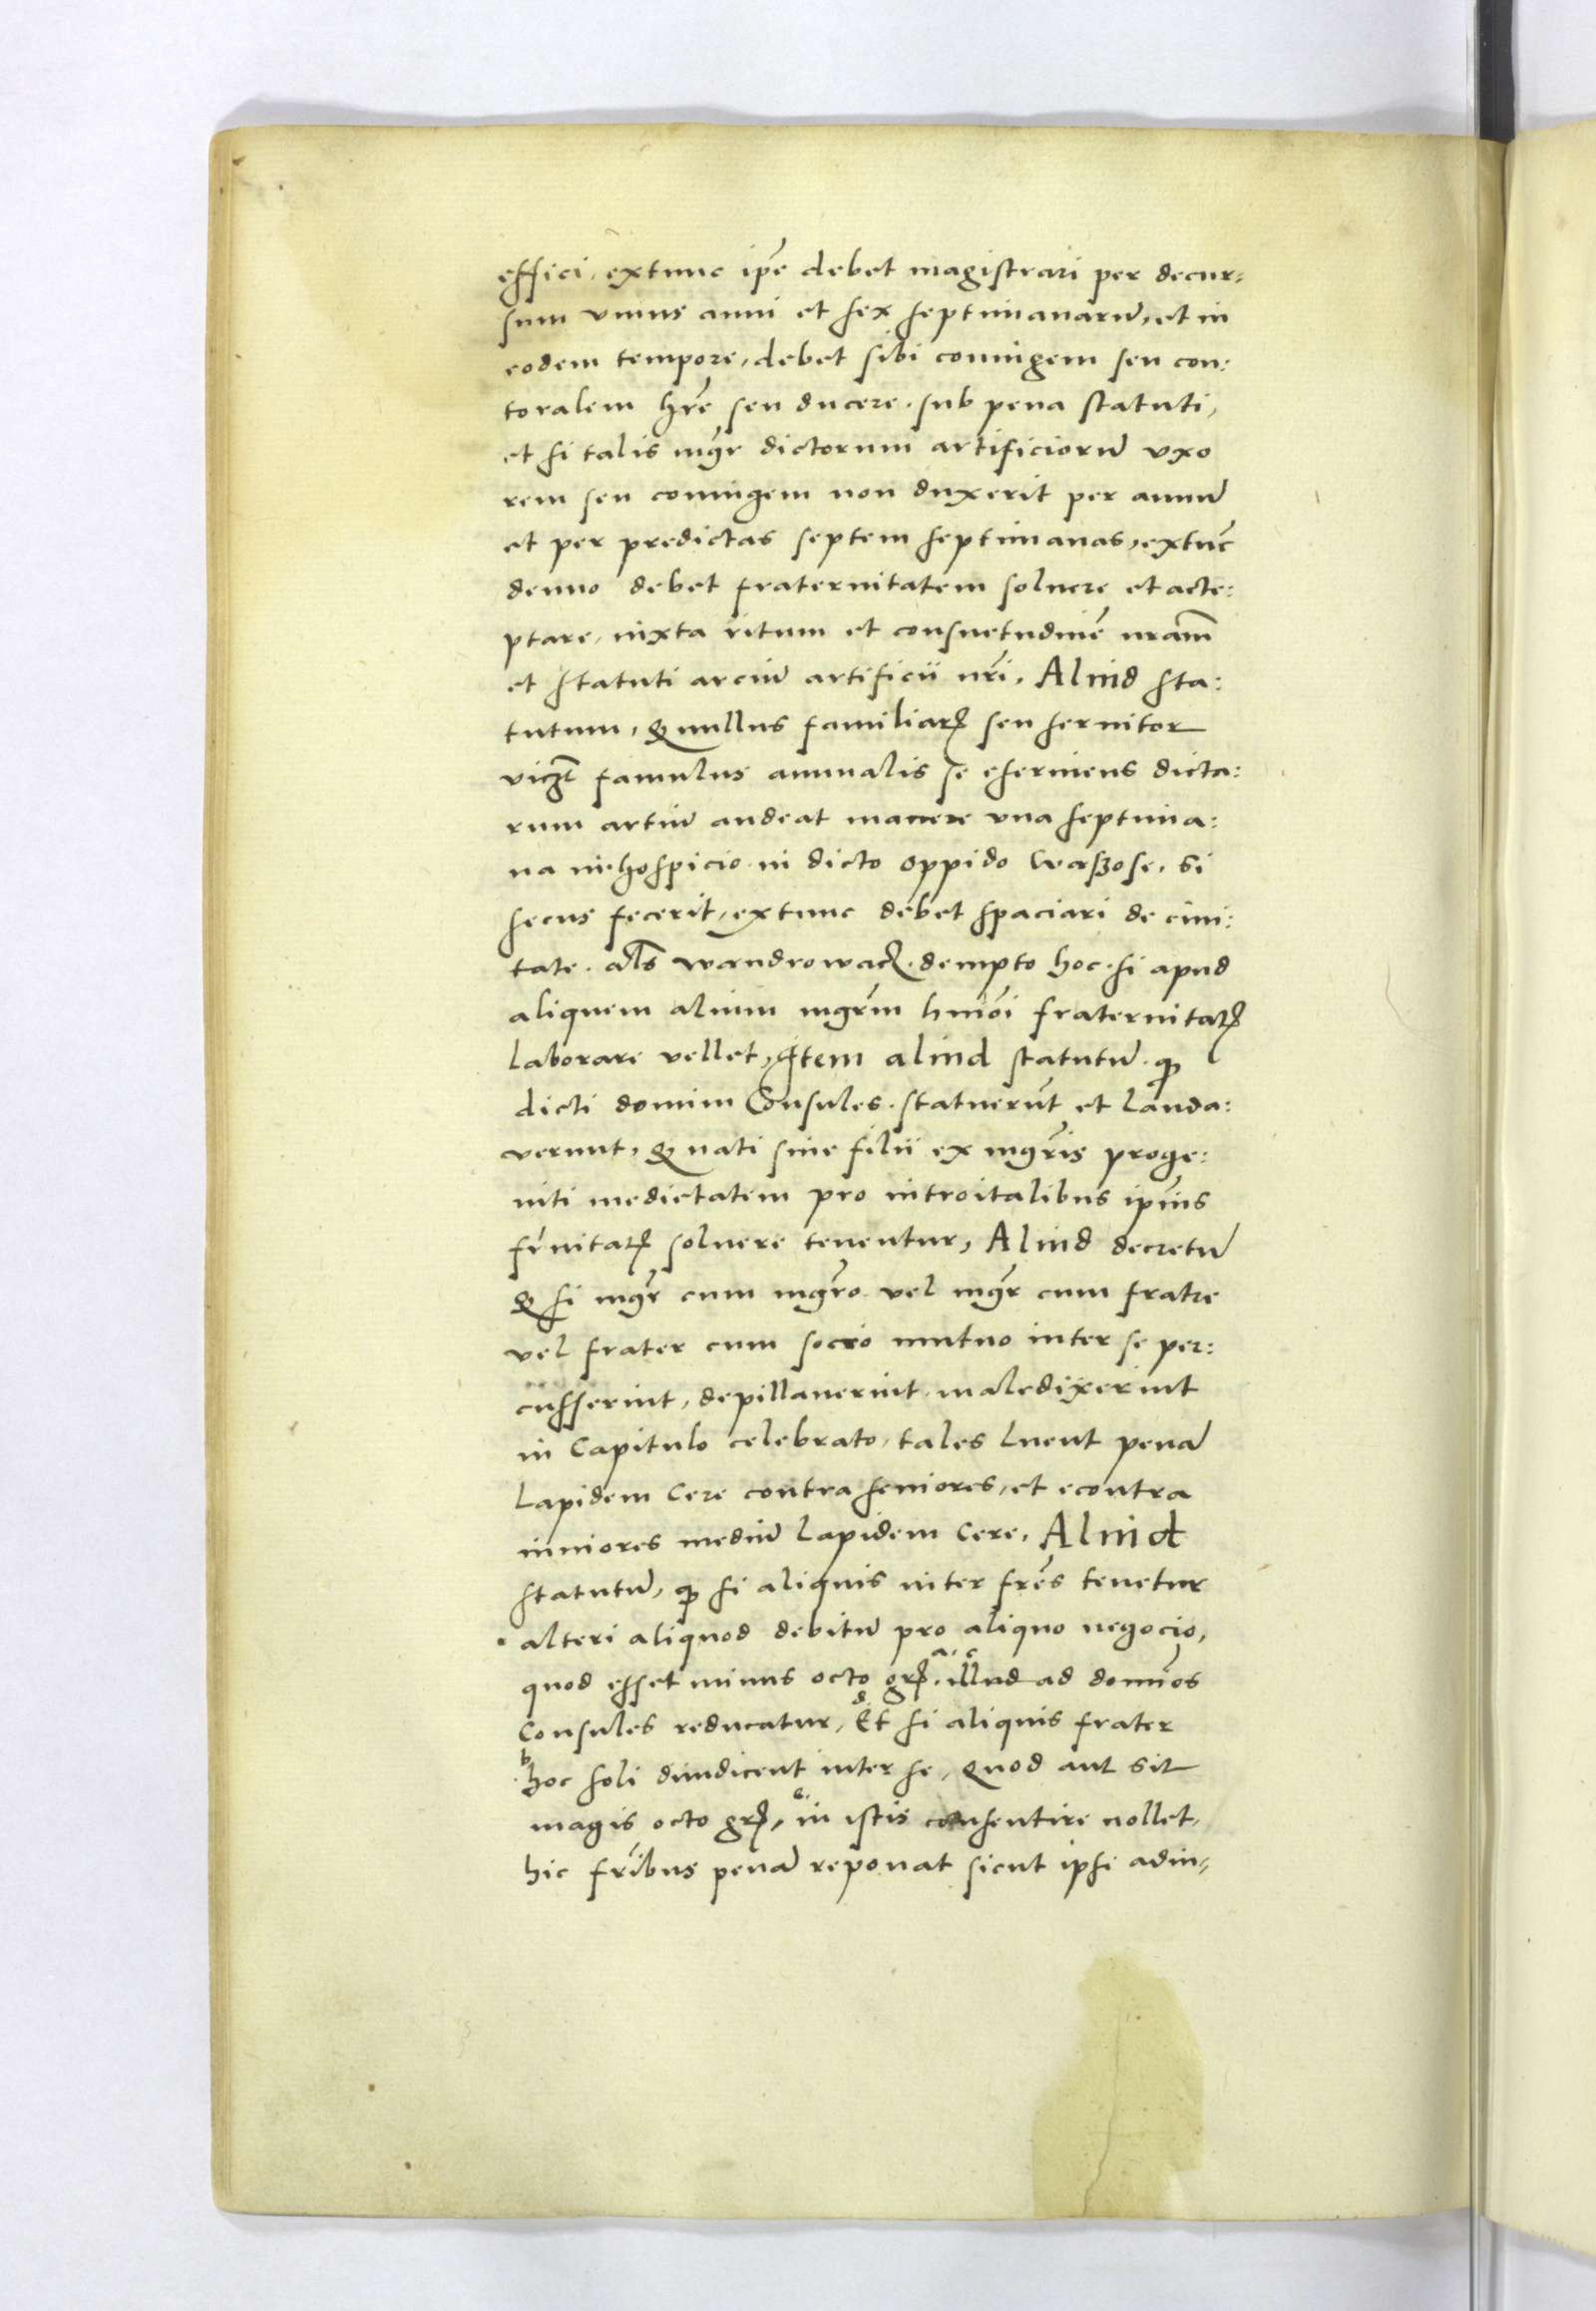 effici, extunc ip̄e debet magistrari per decur:
sum vnius anni et sex septimanarū, et in
eodem tempore, debet sibi coniugem seu con:
toralem hr̄e seu ducere. sub pena statuti,
et si talis mgr̄ dictorum artificiorū vxo
rem seu coniugem non duxerit per annū
et per predictas septem septimanas, extūc
denuo debet fraternitatem soluere et acce:
ptare, iuxta ritum et consuetudinē nr̄am
et statuti arciū artificii nr̄i. Aliud sta:
tutum, ꝙ nullus familiarꝭ seu seruitor
vicꝫ famulus annualis se eseruiens dicta:
rum artiū audeat manere vna septima:
na in hospicio in dicto oppido Wąssosze. Si
secus fecerit, extunc debet spaciari de ciui:
tate. al̄s wandrowacꝭ. dempto hoc. si apud
aliquem alium mgr̄m hmōi fraternitatꝭ
laborare vellet, Item aliud statutū. ꝙ
dicti domini Consules. statuerūt et lauda:
verunt, ꝙ nati siue filii ex mgr̄is proge:
niti medietatem pro introitalibus ip̄ius
fr̄nitatꝭ soluere tenentur, Aliud decretū
ꝙ si mgr̄ cum mgr̄o vel mgr̄ cum fratre
vel frater cum socio mutuo inter se per:
cusserint, depillauerint. maledixerint
in Capitulo celebrato, tales luent penā
Lapidem Cere contra seniores, et econtra
iuniores mediū lapidem Cere, Aliud
statutū, ꝙ si aliquis inter fr̄es tenetur
alteri aliquod debitū pro aliquo negocio,
quod esset minus octo grꝭ. a. c. illud ad domīos
Consules reducatur, d. Et si aliquis frater
b. hoc soli diiudicent inter se, quod aut sit
magis octo grꝭ, e. in istis consentire nollet,
hic fr̄ibus penā reponat sicut ipsi adin,